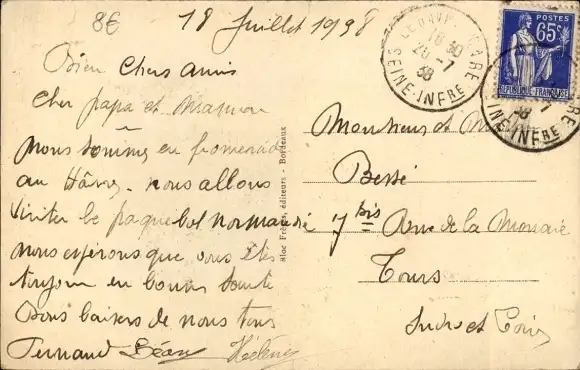 8€
18 Juillet 1938
Bien Chers amis
cher papa et Maman
nous sommes en promenade
au Hâvre. nous allons
visiter le paquebot normandie
nous espérons que vous êtes
toujours en bonne santé
Bons baisers de nous tous
Fernand Hélène
Bloc Frères, éditeurs - Bordeaux
LE HAVRE GARE
18 30
20-7
38
SEINE-INFRE
POSTES
65c
REPUBLIQUE FRANÇAISE
GARE
-7
38
SEINE-INFRE
Monsieur et
Bessé
7 bis Rue de la Monnaie
Tours
Indre et Loire